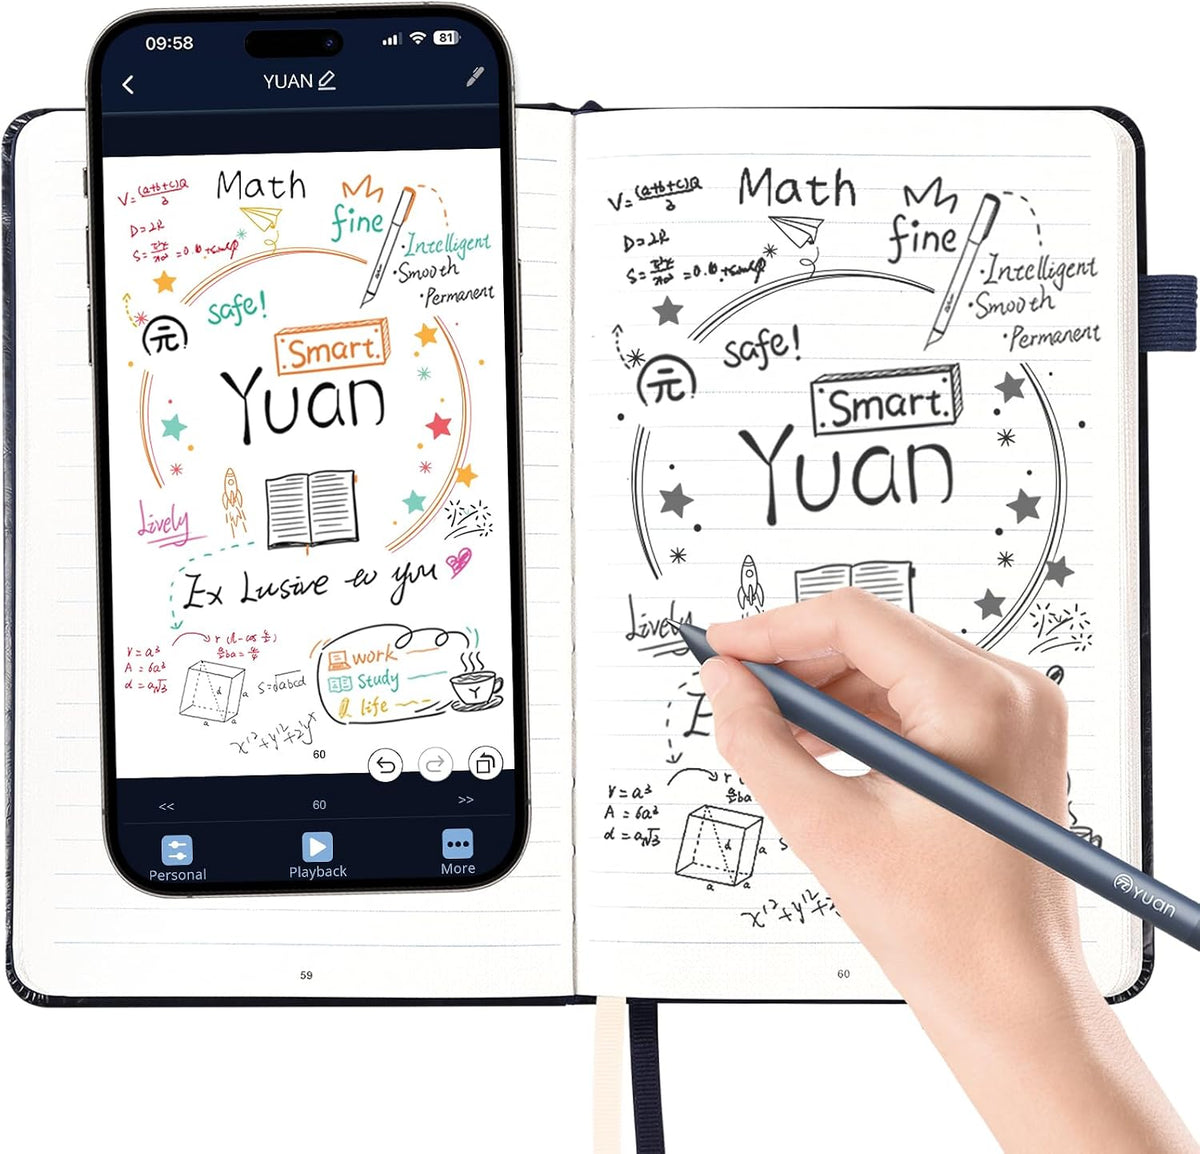 09:58
81
YUAN
V=(a+b+c)Q/3
Math
fine
D=2R
·Intelligent
·Smooth
·Permanent
safe!
元
Smart.
Yuan
Lively
Ex Lusive to you
V=a³
A=6a²
d=a√3
d
a
a
a
S=√abcd
work
Study
life
Y
60
<<
60
>>
Personal
Playback
More
59
Math
fine
D=2R
·Intelligent
·Smooth
·Permanent
safe!
元
Smart.
Yuan
Lively
E
V=a³
A=6a²
d=a√3
d
a
a
a
S
60
元Yuan